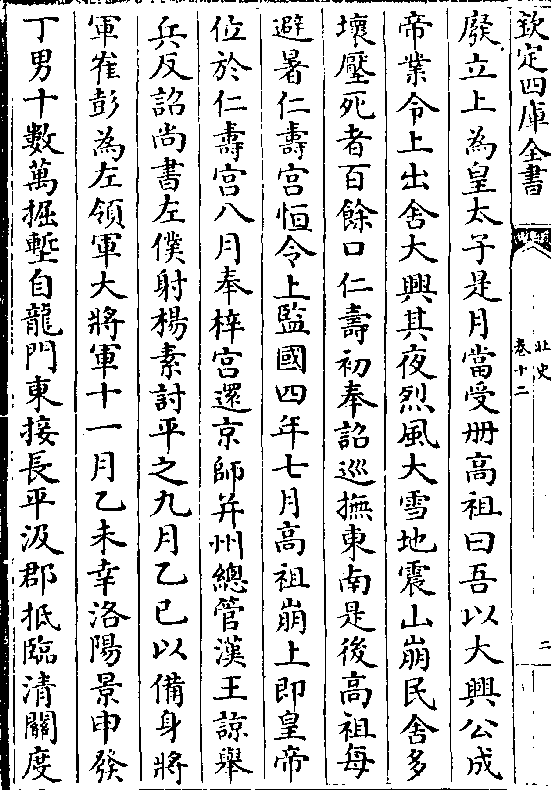 欽定四庫全書
北史
卷十二
二
廢立上為皇太子是月當受冊高祖曰吾以大興公成
帝業令上出舍大興其夜烈風大雪地震山崩民舍多
壞壓死者百餘口仁壽初奉詔巡撫東南是後高祖每
避暑仁壽宮恒令上監國四年七月高祖崩上即皇帝
位於仁壽宮八月奉梓宮還京師并州總管漢王諒舉
兵反詔尚書左僕射楊素討平之九月乙巳以備身將
軍崔彭為左領軍大將軍十一月乙未幸洛陽景申發
丁男十數萬掘塹自龍門東接長平汲郡抵臨清關度